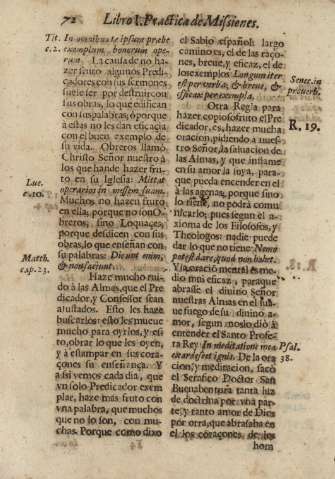 72 Libro I. Practica de Missiones.
Tit. c. 2.
In omnibus te ipsum præbe
exemplum, bonorum ope-
rum.
La causa de no ha-
zer fruto algunos Predi-
cadores con sus sermones
suele ser por destruir con
sus obras, lo que edifican
con sus palabras, ò porque
a ellas no les dan eficacia
con el buen exemplo de
su vida. Obreros llamò
Christo Señor nuestro à
los que hande hazer fru-
to en su Iglesia: Mittat
operarios in messem suam.
Luc. c. 10.
Muchos no hazen fruto
en ella, porque no son O-
breros, sino Loquaces,
porque desdicen con sus
obras, lo que enseñan con
su palabras: Dicunt enim,
& non faciunt.
Matth. cap. 23.
Haze mucho rui-
do à las Almas, que el Pre
dicador, y Confessor sean
ajustados. Esto les haze
buscarlos: esto les mueue
mucho para oyrlos, y es-
to, obrar lo que les oyen,
y à estampar en sus cora-
çones su enseñança. Y
a si vemos cada dia, que
vn solo Predicador exem
plar, haze mas fruto con
vna palabra, que muchos
que no lo son, con mu-
chas. Porque como dixo
el Sabio español: largo
camino es, el de las raço-
nes, breue, y eficaz, el de
los exemplos Longum iter
est per verba, & breue, &
efficax per exempla.
Senec. in prouerb.
Otra Regla para
hazer copioso fruto el Pre-
dicador, es, hazer mucha
oracion, pidiendo a nues-
tro Señor, la saluacion de
las Almas, y que inflame
en su amor la suya, para-
que pueda encender en el
à las agenas, porque sino
lo tiene, no podrà comu
nicarlo; pues segun el a-
xioma de los Filosofos, y
Theologos: nadie puede
dar lo que no tiene: Nemo
potest dare, quod non habet.
R. 19.
Y la oracion mental es me-
dio mui eficaz, para que
abrase el diuino Señor
nuestras Almas en el sua-
ue fuego de su diuino a-
mor, segun nos lo diò à
entender el Santo Profe-
ta Rey In meditatione mea
exardescet ignis.
Psal. 38.
De la ora
cion, y meditacion, sacò
el Serafico Doctor San
Buenabentura tanta luz
de doctrina por vna par-
te, y tanto amor de Dios
por otra, que abrasaba en
el los coraçones de los
hom